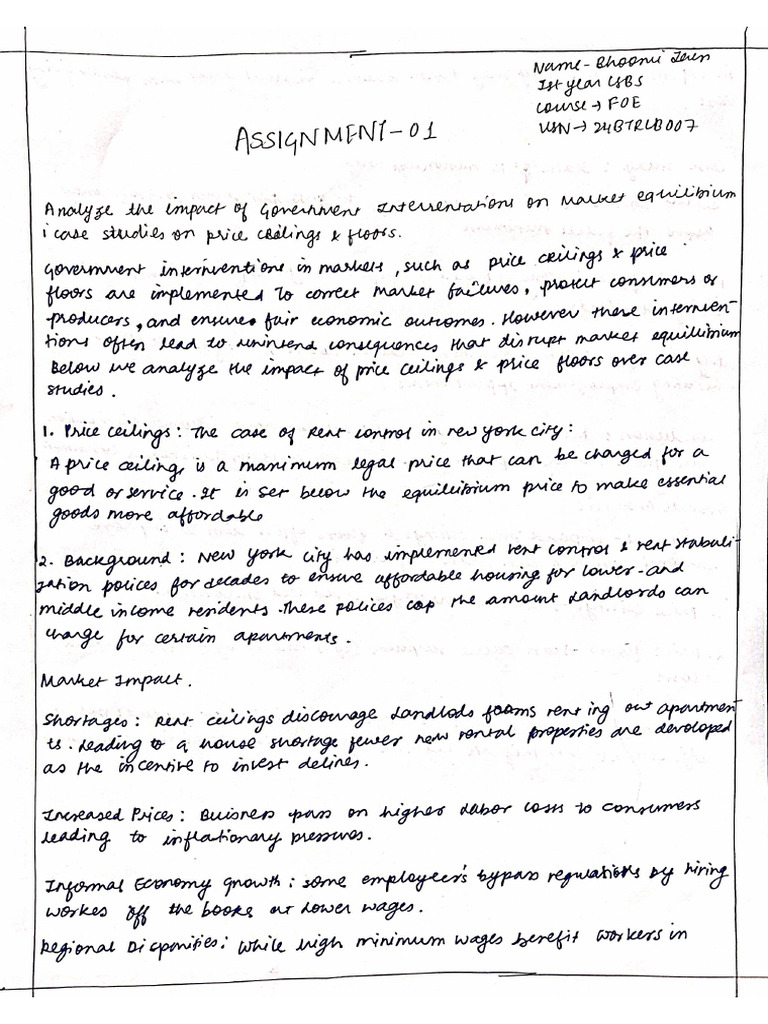 Name - Bhoomi Jain
Ist year CSBS
Course → FOE
USN → 24BTRLB007
ASSIGNMENT-01
Analyze the impact of Government Interventations on Market equilibrium
i case studies on price ceilings & floors.
Government interinventions in markets, such as price ceilings & price
floors are implemented to correct market failures, protect consumers or
producers, and ensure fair economic outcomes. However these interven-
tions often lead to uninvend consequences that disrupt market equilibrium
Below we analyze the impact of price ceilings & price floors over case
studies.
1. Price ceilings: The case of Rent control in new york city:
A price ceiling is a maximum legal price that can be charged for a
good or service. It is set below the equilibrium price to make essential
goods more affordable
2. Background: New York city has implemented rent control & rent stabuli-
zation polices for decades to ensure affordable housing for lower-and
middle income residents. These polices cap the amount landlords can
charge for certain apartments.
Market Impact.
Shortages: Rent ceilings discourage Landlods from renting out apartmen-
ts. leading to a house shortage fewer new rental properties are devoloped
as the incentive to invest delines.
Increased Prices: Buisness pass on higher labor costs to consumers
leading to inflationary pressures.
Informal Economy Growth: some employeer's bypass regulations by hiring
workes off the books at lower wages.
Regional Disparities: While high minimum wages benefit workers in